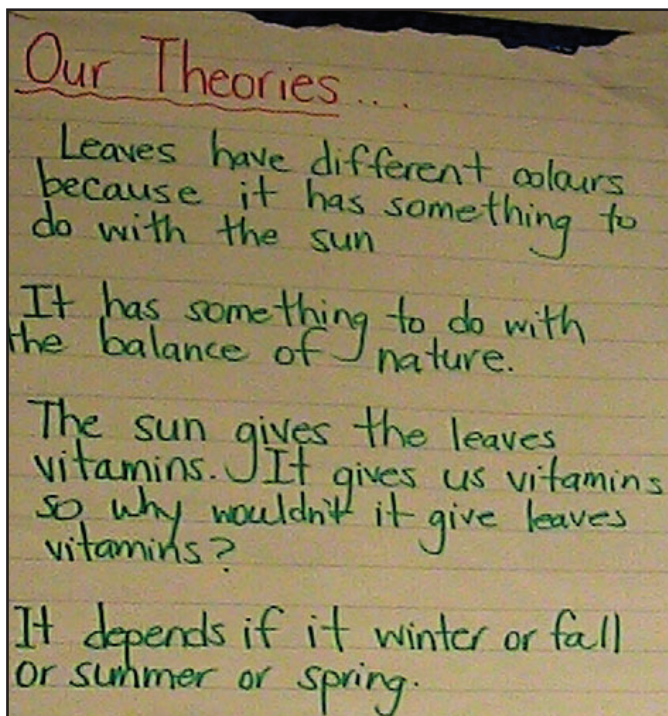 Our Theories...
Leaves have different colours
because it has something to
do with the sun
It has something to do with
the balance of nature.
The sun gives the leaves
vitamins. It gives us vitamins
so why wouldn't it give leaves
vitamins?
It depends if it winter or fall
or summer or spring.